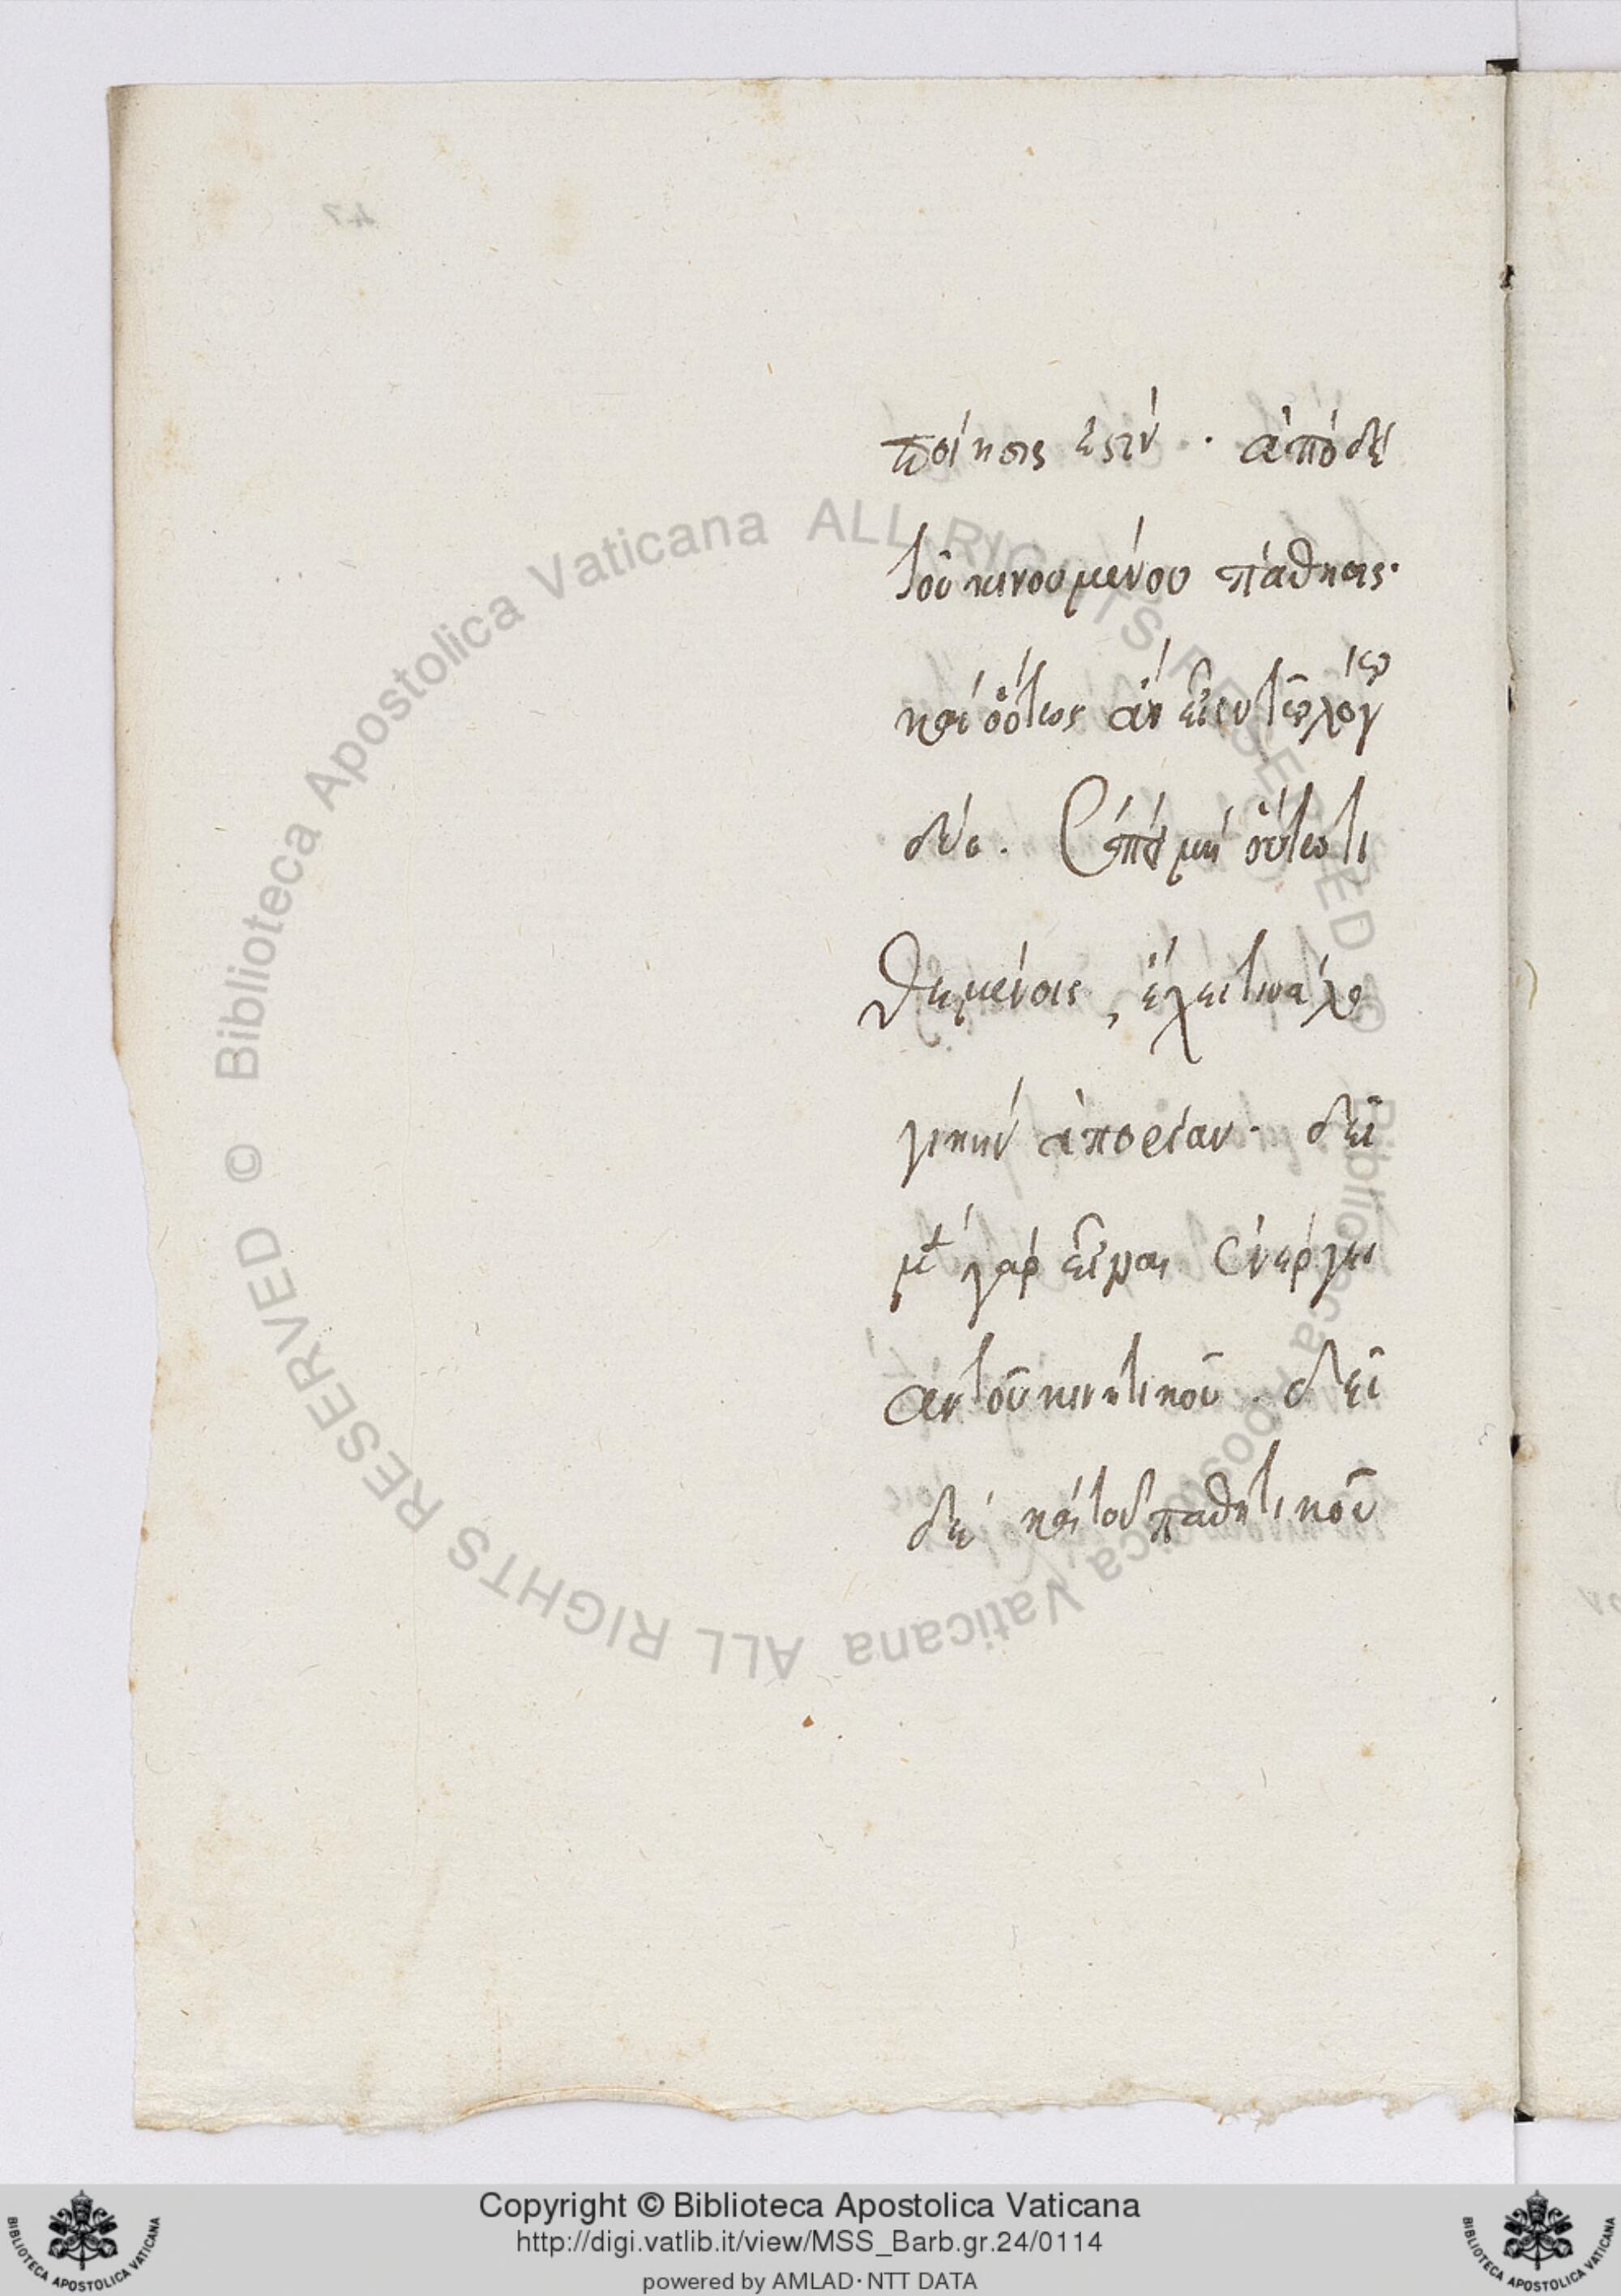 ποίησις ἐστίν · ἀπὸ δὲ
τοῦ κινουμένου πάθησις ·
καὶ οὕτως ἂν εἶεν τῷ λόγῳ
δύο .
μὴ οὕτω τι
θεμένοις , ἔχει τινὰ λο
γικὴν ἀπορίαν · δεῖ
μὲν γὰρ εἶναι ἐνέργει
αν τοῦ κινητικοῦ . δεῖ
δὲ καὶ τοῦ παθητικοῦ
© Biblioteca Apostolica Vaticana ALL RIGHTS RESERVED © Biblioteca Apostolica Vaticana ALL RIGHTS RESERVED
Copyright © Biblioteca Apostolica Vaticana
http://digi.vatlib.it/view/MSS_Barb.gr.24/0114
powered by AMLAD·NTT DATA
BIBLIOTECA APOSTOLICA VATICANA
BIBLIOTECA APOSTOLICA VATICANA